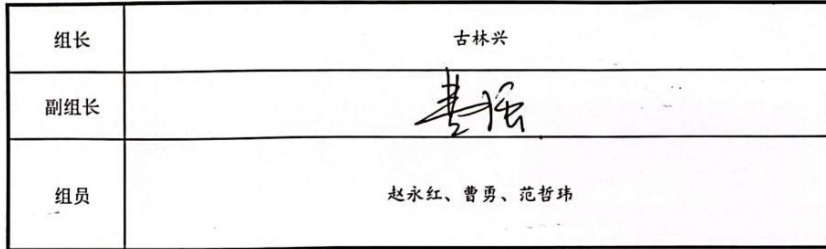 组长 古林兴
副组长
组员 赵永红、曹勇、范哲玮